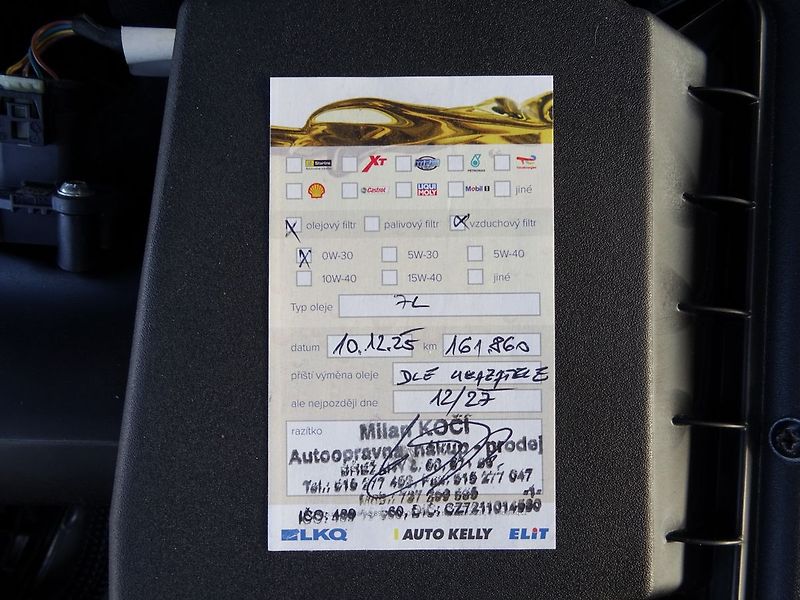 Starline XT PETRONAS TotalEnergies
Shell Castrol LIQUI MOLY Mobil 1 jiné
olejový filtr palivový filtr vzduchový filtr
0W-30 5W-30 5W-40
10W-40 15W-40 jiné
Typ oleje 7L
datum 10.12.25 km 161.860
příští výměna oleje DLE UKAZATELE
ale nejpozději dne 12/27
razítko
Milan KOČÍ
Autoopravna, nákup - prodej
IČO: DIČ: CZ7211014530
LKQ AUTO KELLY ELIT